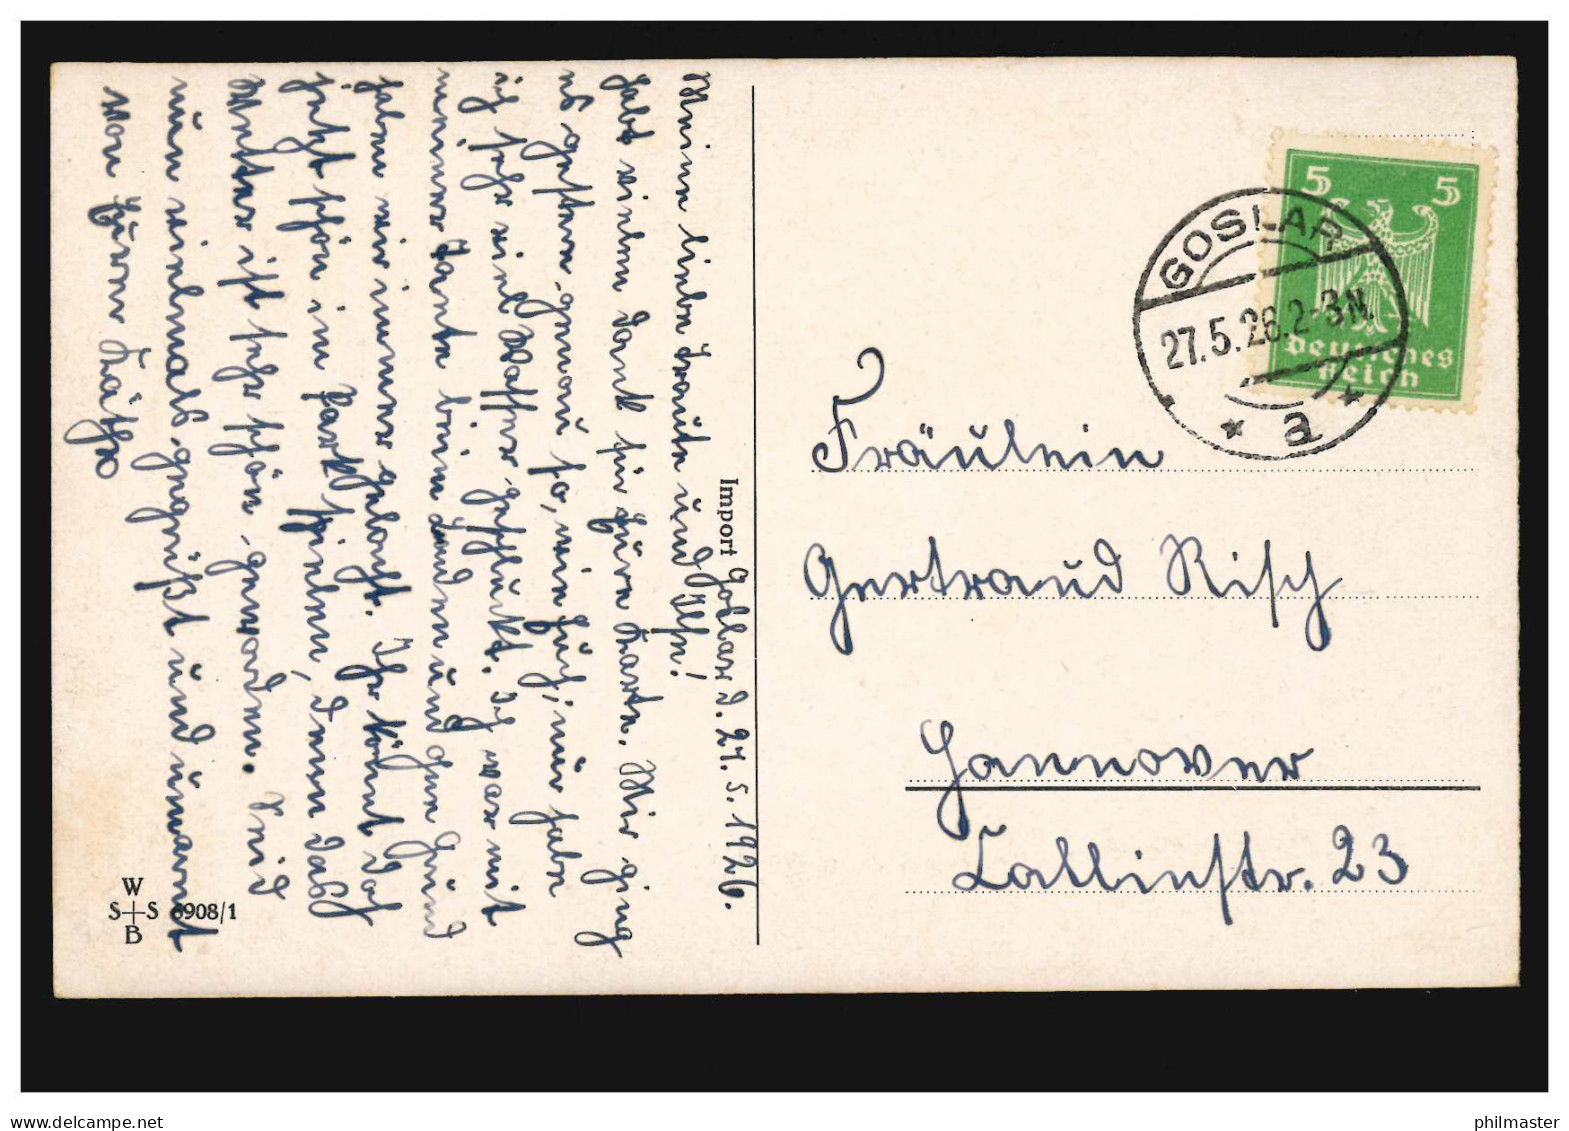 Import
Goslar d. 27. 5. 1926.
Meine liebe Traute und Ilse!
Habt vielen Dank für Eure Karte. Mir ging
es gestern genau so, wie Euch, nur habe
ich sehr viel Wasser geschluckt. Ich war mit
meiner Tante beim Baden und
haben wir immer gelacht. Ihr könnt doch
jetzt schön im Park spielen, denn das
Wetter ist sehr schön geworden. Seid
nun vielmals gegrüßt und umarmt
von Eurer Käthe
W
S+S 6908/1
B
5 5
Deutsches
Reich
GOSLAR
27.5.26.2-3N.
* a *
Fräulein
Gertraud Risch
Hannover
Sallinstr. 23
www.delcampe.net
philmaster